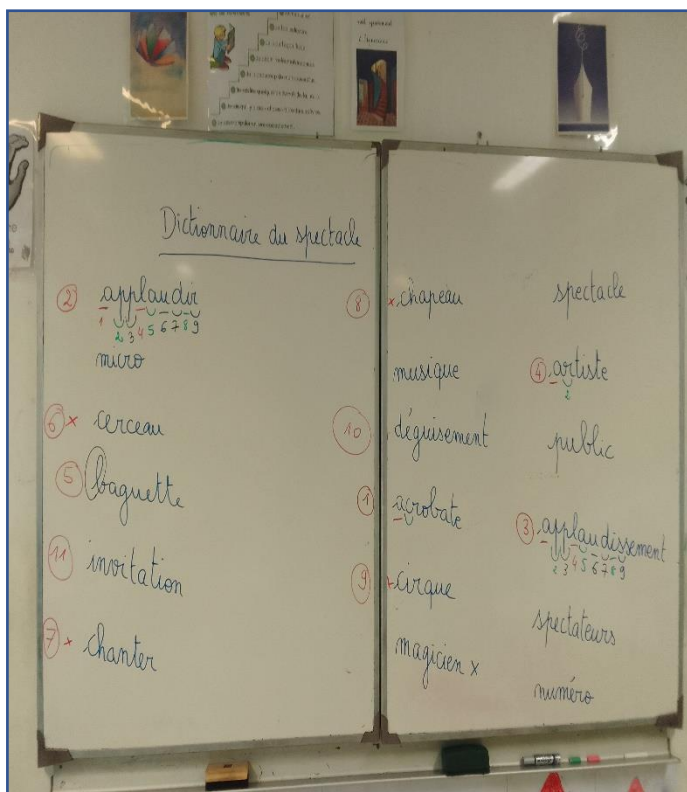 Dictionnaire du spectacle
② applaudir
1 2 3 4 5 6 7 8 9
micro
⑥ x cerceau
⑤ baguette
⑪ invitation
⑦ x chanter
⑧ x chapeau
musique
⑩ déguisement
① acrobate
⑨ x cirque
magicien x
spectacle
④ artiste
2
public
③ applaudissement
2 3 4 5 6 7 8 9
spectateurs
numéro